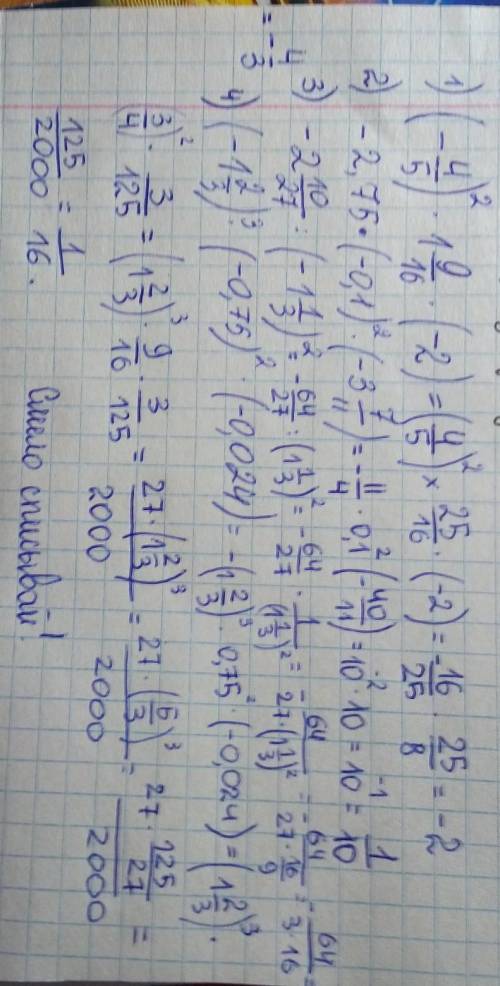 1) (-4/5)² · 1 9/16 · (-2) = (4/5)² × 25/16 · (-2) = -16/25 · 25/8 = -2
2) -2,75 · (-0,1)² · (-3 7/11) = -11/4 · 0,1² (-40/11) = 10 · 10⁻² = 10⁻¹ = 1/10
3) -2 10/27 : (-1 1/3)² = -64/27 : (1 1/3)² = -64/27 · 1/(1 1/3)² = -64/(27·(1 1/3)²) = -64/(27·16/9) = -64/(3·16) =
= -4/3
4) (-1 2/3)³ · (-0,75)² · (-0,024) = -(1 2/3)³ · 0,75² · (-0,024) = (1 2/3)³ ·
(3/4)² · 3/125 = (1 2/3)³ · 9/16 · 3/125 = 27·(1 2/3)³/2000 = 27·(5/3)³/2000 = 27·125/27/2000 =
125/2000 = 1/16.
Смело списывай!